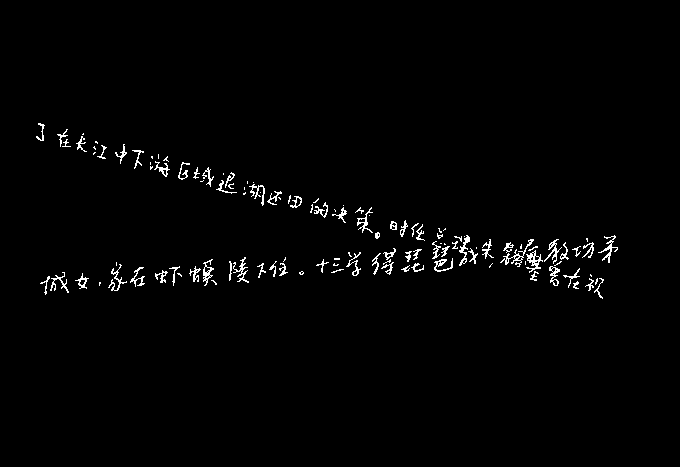 了在长江中下游区域退湖还田的决策。时任总理
城女，家在虾蟆陵下住。十三学得琵琶成，名属教坊第